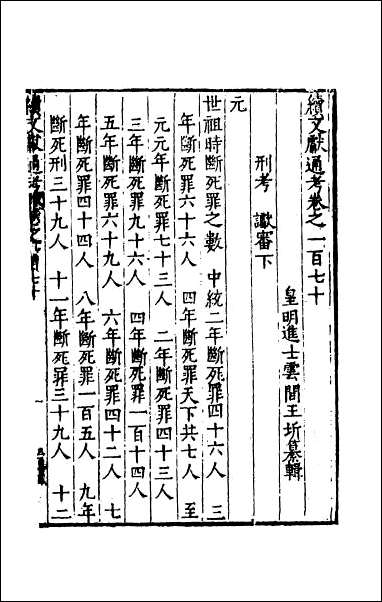 續文獻通考卷之一百七十
皇明進士雲間王圻纂輯
刑考 讞審下
元
世祖時斷死罪之數 中統二年斷死罪四十六人 三
年斷死罪六十六人 四年斷死罪天下共七人 至
元元年斷死罪七十三人 二年斷死罪四十三人
三年斷死罪九十六人 四年斷死罪一百十四人
五年斷死罪六十九人 六年斷死罪四十二人 七
年斷死罪四十四人 八年斷死罪一百五人 九年
斷死刑三十九人 十一年斷死罪三十九人 十二
續文獻通考